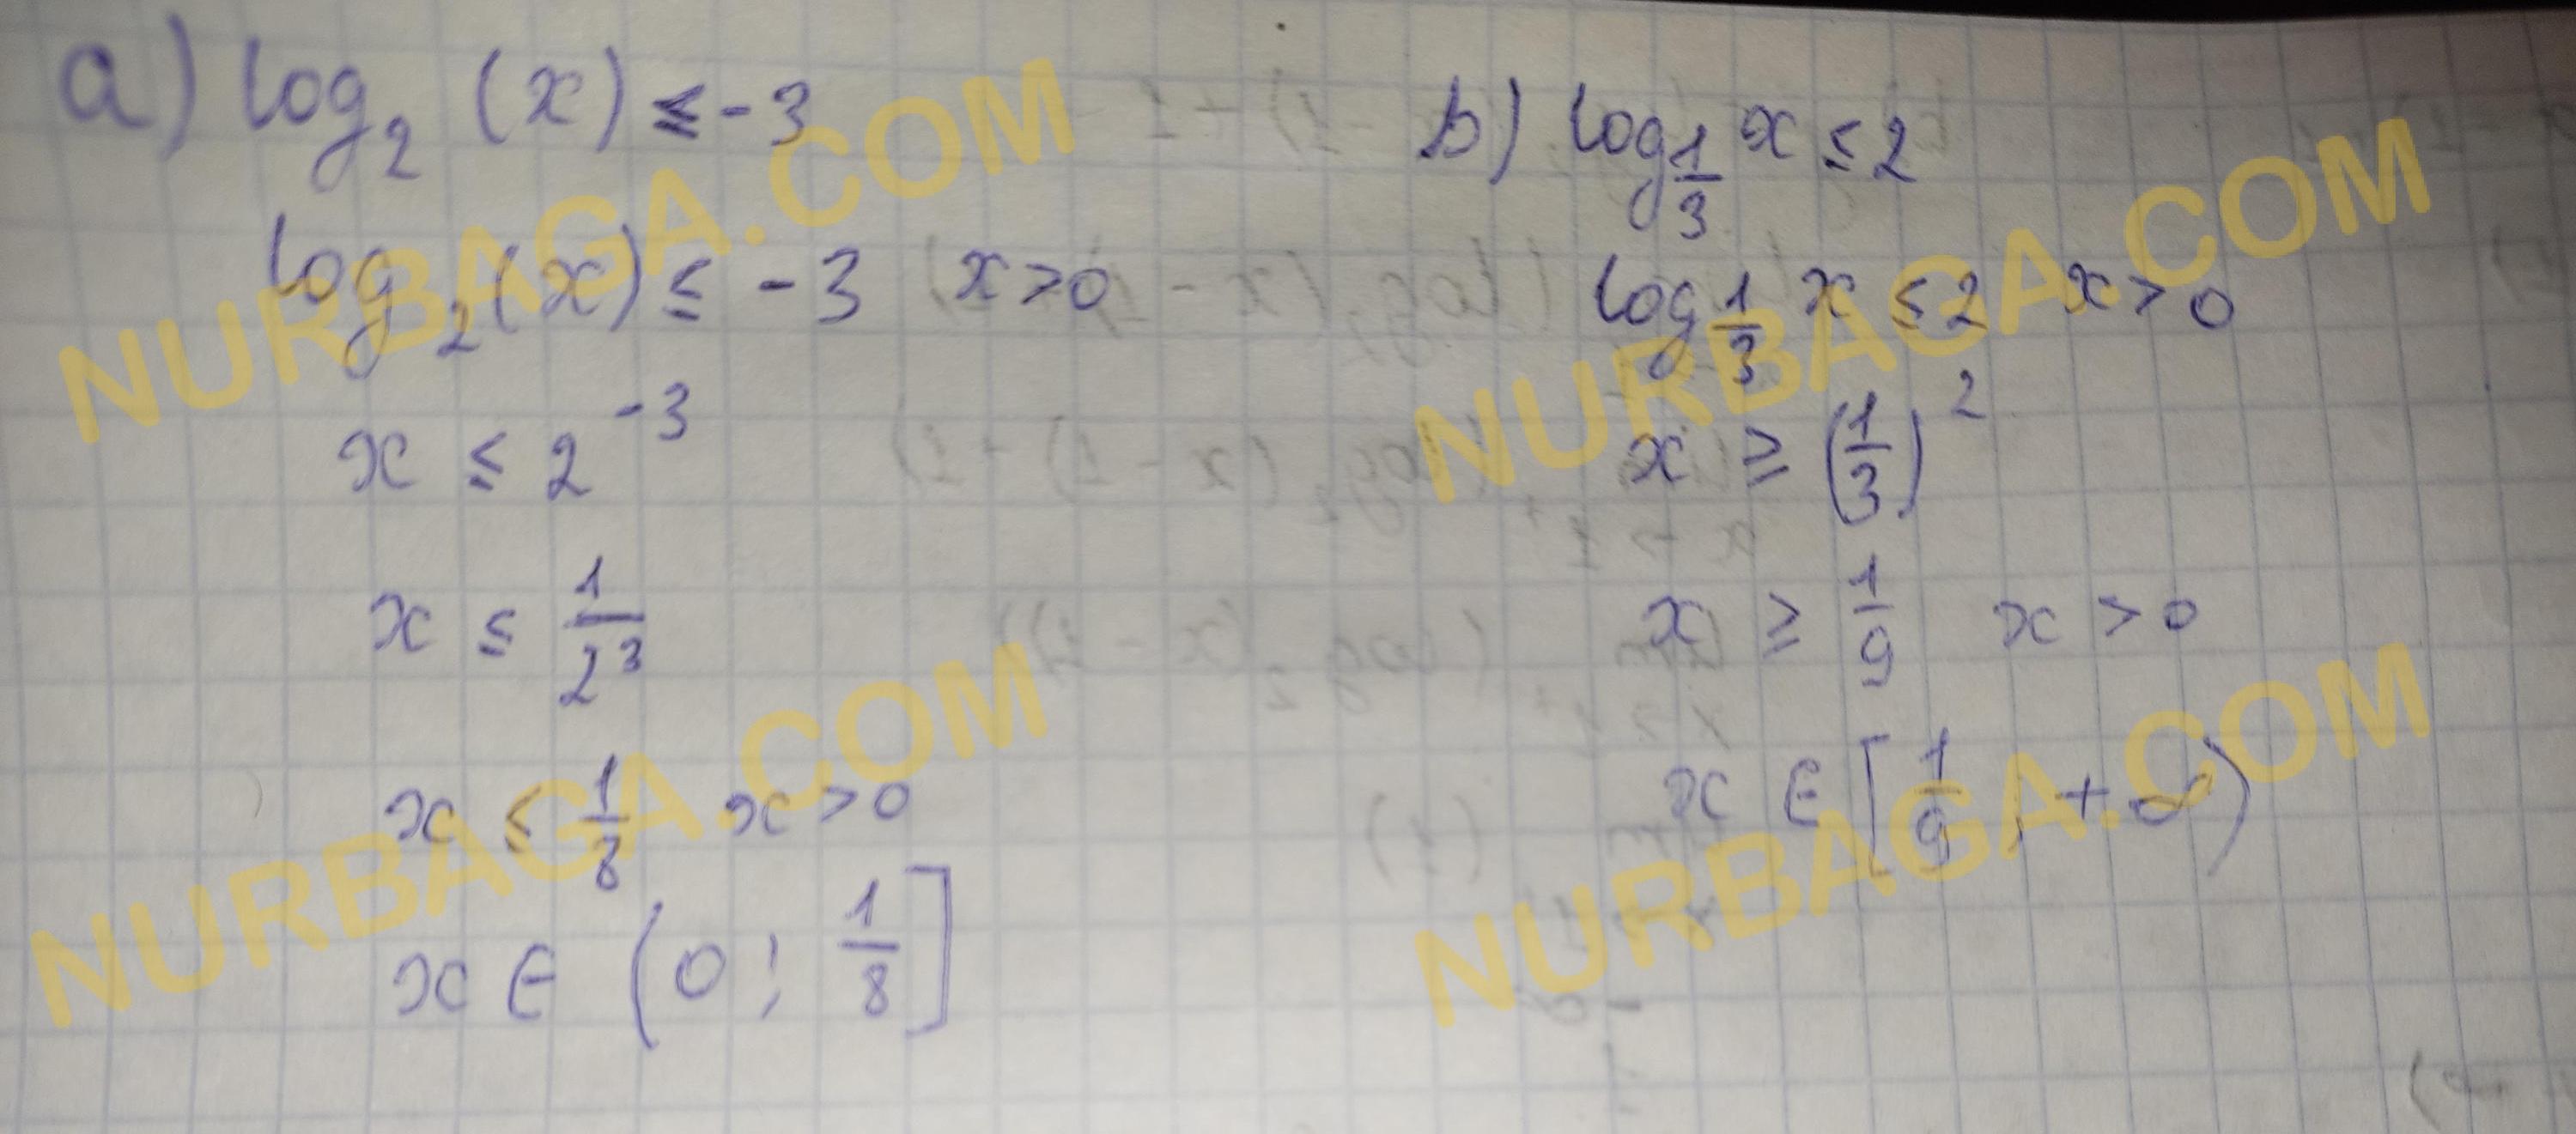 a) log₂ (x) ≤ -3
log₂ (x) ≤ -3 x > 0
x ≤ 2⁻³
x ≤ 1/2³
x ≤ 1/8 x > 0
x ∈ (0 ; 1/8]
b) log_{1/3} x ≤ 2
log_{1/3} x ≤ 2 x > 0
x ≥ (1/3)²
x ≥ 1/9 x > 0
x ∈ [1/9 ; +∞)
NURBAGA.COM
NURBAGA.COM
NURBAGA.COM
NURBAGA.COM